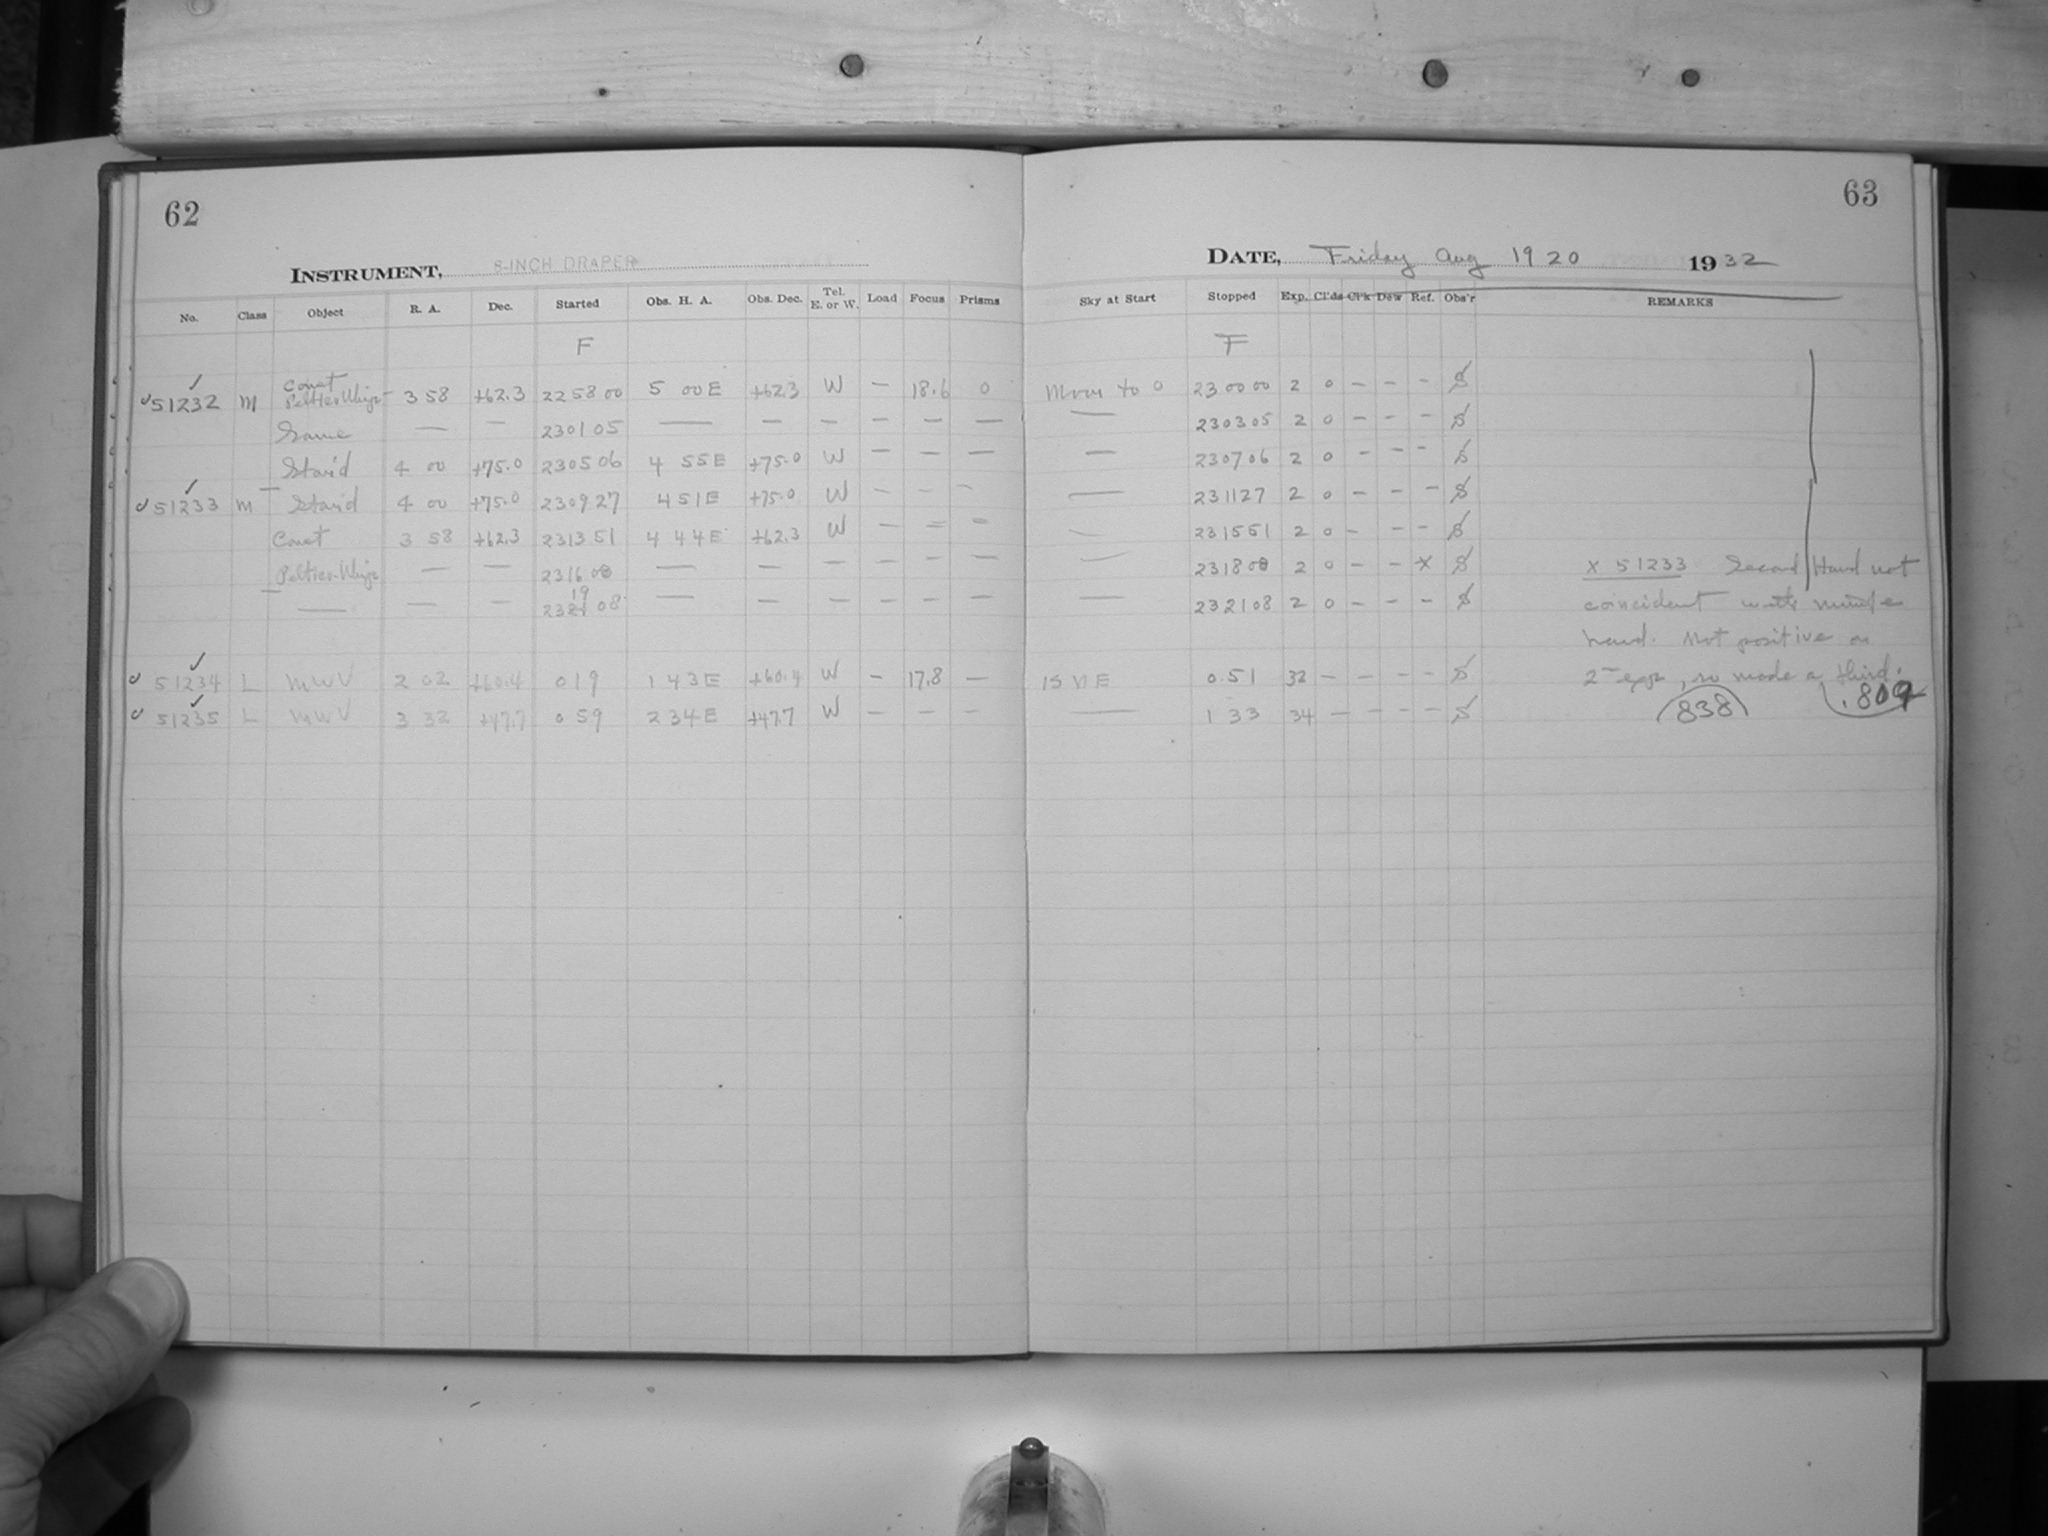 62
INSTRUMENT, 8-INCH DRAPER
No. Class Object R. A. Dec. Started Obs. H. A. Obs. Dec. Tel. E. or W. Load Focus Prisms
F
✓51232 M Comet Peltier-Whip- 3 58 +62.3 22 58 00 5 00 E +62.3 W — 18.6 0
Same — — 23 01 05 — — — — — —
Sta'd 4 00 +75.0 23 05 06 4 55 E +75.0 W — — —
✓51233 M Sta'd 4 00 +75.0 23 09 27 4 51 E +75.0 W — — —
Comet 3 58 +62.3 23 13 51 4 44 E +62.3 W — — —
Peltier-Whip — — 23 16 08 — — — — — —
— — — 23 19 08 — — — — — —
✓51234 L MWV 2 02 +60.4 0 19 1 43 E +60.4 W — 17.8 —
✓51235 L MWV 3 32 +47.7 0 59 2 34 E +47.7 W — — —
63
DATE, Friday Aug 19 20 1932
Sky at Start Stopped Exp. Cl'ds Cl'k Dew Ref. Obs'r REMARKS
F
Moon to 0 23 00 00 2 0 — — — S
— 23 03 05 2 0 — — — S
— 23 07 06 2 0 — — — S
— 23 11 27 2 0 — — — S
— 23 15 51 2 0 — — — S
— 23 18 08 2 0 — — x S x 51233 Second Hand not
— 23 21 08 2 0 — — — S coincident with minute
hand. Not positive on
0 51 32 — — — — S 2 exp, so made a third.
— 1 33 34 — — — — S 838 .809